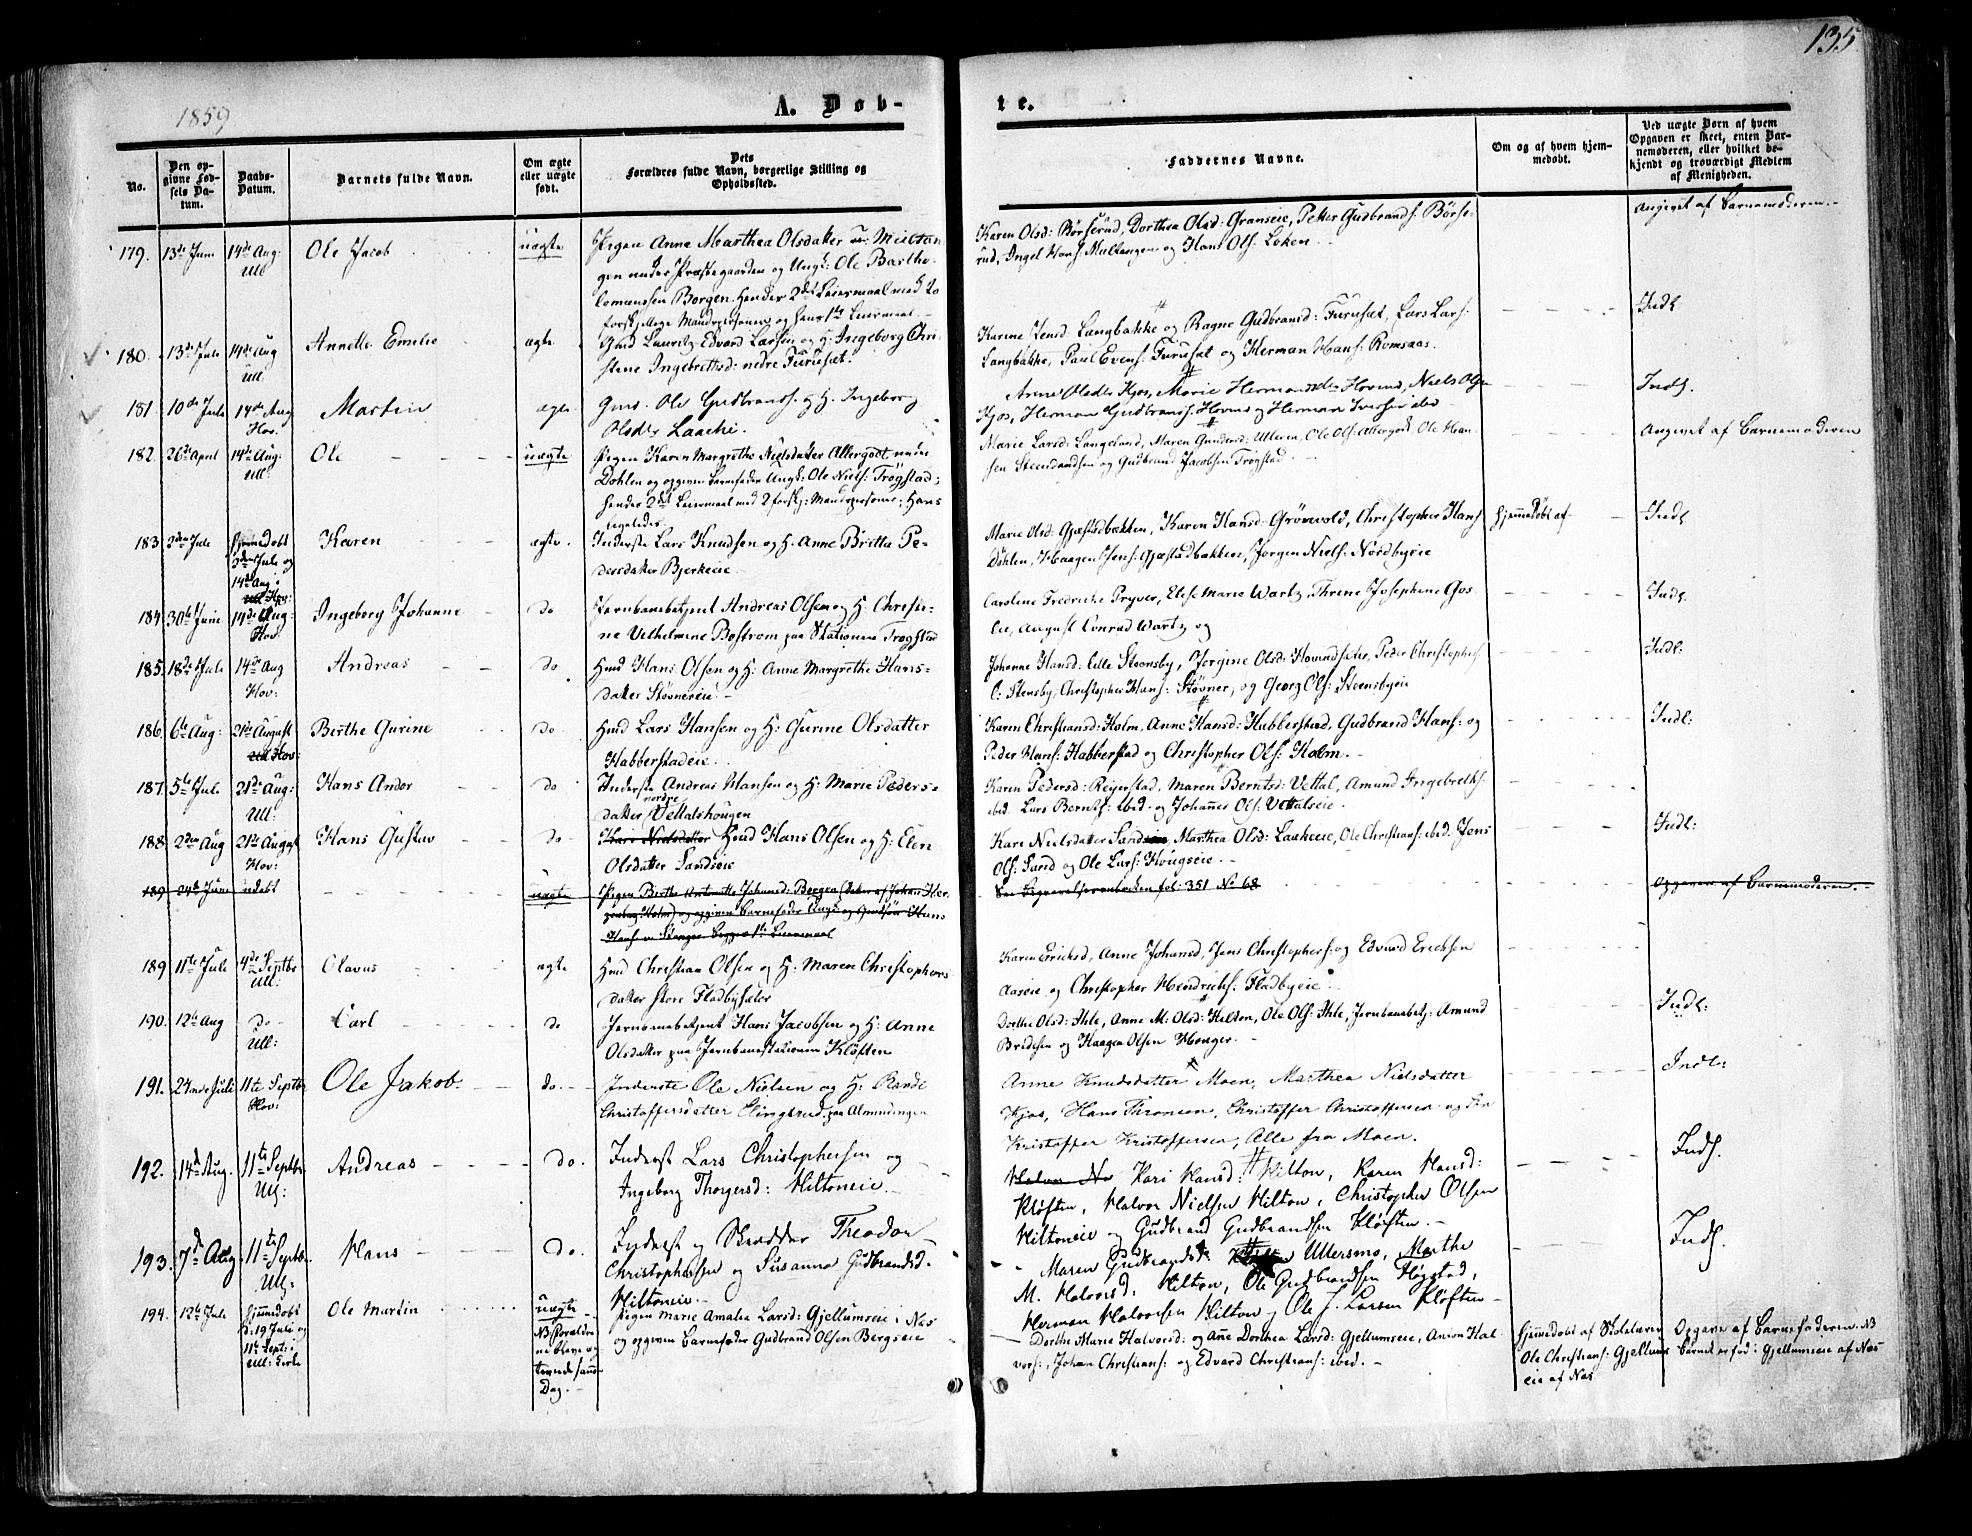 135
1859
A. Døb-
te.
No.
Den opgivne Fødsels Datum.
Daabs-Datum.
Barnets fulde Navn.
Om ægte eller uægte født.
Dets Forældres fulde Navn, borgerlige Stilling og Opholdssted.
Faddernes Navne.
Om og af hvem hjemmedøbt.
Ved uægte Børn af hvem Opgaven er skeet, enten Barnemoderen, eller hvilket bekjendt og troværdigt Medlem af Menigheden.
179. 13de Juni 14de Aug: Ull Ole Jacob uægte
Pigen Anne Marthea Olsdatter
gen under Præstegaarden og Ungk: Ole Bartho-
lomæussen Borgen. Hendes 2det Leiermaal med to
forskjellige Mandspersoner og hans 1ste Leiermaal
Karen Olsd: Børserud, Dorthea Olsd: Granseie, Petter Gudbrands: Børse-
rud, Ingel Hans: Mullangen og Hans Ols: Løken
Angivet af Barnemoderen.
180. 13de Juli 14de Aug Ull: Annette Emilie ægte
Gmd Lauritz Edvard Larsen og H: Ingeborg Chri-
stene Ingebrethsd: nedre Furuset.
Karine Jensd: Langbakke og Ragne Gudbrandsd: Furuset, Lars Lars:
Langbakke, Paul Evens: Furuset og Herman Hans: Romsaas.
Indl
181 10de Juli 14de Aug Hov. Martin ægte
Gmd. Ole Gudbrands: og H. Ingeborg
Olsdtr Laache.
Anne Olsdtr Kjos, Marie Hermansdtr Hovind, Niels Olsen
Kjos, Herman Gudbrands: Hovind og Herman Iversen ibd
Indl.
182. 26de April 14de Aug: Ull: Ole uægte
Pigen Karen Margrethe Nielsdatter Allergodt under
Dohlen og opgiven Barnefader Ungk: Ole Niels: Trøgstad;
hendes 2det Leiermaal med 2 forskj: Mandspersoner; Hans
ligeledes
Marie Larsd: Langeland, Maren Gundersd: Ulleren, Ole Ols: Allergodt Ole Han-
sen Steensandsen og Gudbrand Jacobsen Trøgstad.
Angivet af Barnemoderen
183 2den Juli Hjemmedøbt 3die Juli og 14de Aug i Hov: Karen ægte.
Inderste Lars Knudsen og H. Anne Britta Pe-
dersdatter Bjerkeeie
Marie Olsd: Gjæstadbakken, Karen Hansd: Grønvold, Christopher Hans:
Dohlen, Haagen Jens: Gjæstadbakken, Jørgen Niels: Nordbyeie
Hjemmedøbt af
Indl
184. 30te Juni 14de Aug: Hov: Ingeborg Johanne do
Jernbanebetjent Andreas Olsen og H. Christi-
ne Vilhelmine Bostrøm paa Stationen Trøgstad
Caroline Fredrikke Pryver, Elise Marie Wartz, Thrine Josephine Gos
lie, August Conrad Wartz og
Indl.
185. 18de Juli 14de Aug Hov: Andreas do.
Hmd Hans Olsen og H: Anne Margrethe Hans-
datter Støvnereie
Johanne Hansd: Lille Steensby, Jørgine Olsd: Hovindsæter, Peder Christophers:
L: Stensby, Christopher Hans: Støvner, og Georg Ols: Steensbyeie
Indl:
186. 6te Aug: 21de August Hov: Birthe Gurine do
Hmd Lars Hansen og H: Gurine Olsdatter
Habberstadeie
Karen Christiansd: Holm, Anne Hansd: Hubberstad, Gudbrand Hans: og
Peder Hans: Habberstad og Christopher Ols: Holm.
Indl:
187. 5te Juli 21de Aug: Ull: Hans Andor do
Inderste Andreas Hansen og H: Marie Peders-
datter nordre Vettalshougen
Karen Pedersd: Reierstad, Maren Berntsd: Vettal, Amund Ingebreths:
ibd. Lars Bernts: ibd. og Johannes Ols: Vettalseie.
188. 2den Aug 21de August Hov: Hans Gustav do
Kari Nielsdatter Hmd Hans Olsen og H: Elen
Olsdatter Sandseie
Kari Nielsdatter Sand, Marthea Olsd: Laakeeie, Ole Christians: ibd. Jens
Ols: Sand og Ole Lars: Hougseie.
Indl:
189 24de Juni udøbt uægte
Pigen Birthe Antonette Johansd: Borgen
og opgiven Barnefader
Hans: Stanger. Begges 1ste Leiermaal
See Begravelsesrubriken fol: 351 No 68
Opgaven af Barnemoderen.
189. 11te Juli 4de Septbr Ull: Olavus ægte
Hmd Christian Olsen og H: Maren Christophers
datter store Fladbysæter
Karen Ericksd, Anne Johansd, Jens Christophers: og Edvard Ericksen
Aaseie og Christopher Hendrichs: Fladbyeie
190. 12te Aug do Ull: Carl do
Jernbanebetjent Hans Jacobsen og H: Anne
Olsdatter paa Jernbanestationen Kløften
Dorthe Olsd: Ihle, Anne M: Olsd: Hilton, Ole Ols: Ihle, Jernbanebetj: Amund
Bredesen og Haagen Olsen Monger.
Indl:
191. 24nde Juli 11te Septbr Hov: Ole Jakob do.
Inderste Ole Nielsen og H: Randi
Christoffersdatter Elingsrud paa Almindingen
Anne Knudsdatter Moen, Marthea Nielsdatter
Kjos, Hans Thronsen, Christoffer Christoffersen og
Kristoffer Kristoffersen, Alle fra Moen.
Indl:
192. 14de Aug. 11te Septbr Ull: Andreas do.
Inderst Lars Christophersen og
Ingeborg Thorgersd: Hiltoneie.
Halvor Kari Hansd: Hilton, Karen Hansd:
Kløften, Halvor Nielsen Hilton, Christopher Olsen
Hiltoneie og Gudbrand Gudbrandsen Kløften.
Indl.
193. 7de Aug 11te Septbr Ull: Hans do.
Inderst og Skrædder Theodor
Christophersen og Susanna Gudbrandsd.
Hiltoneie.
Maren Gudbrandsd: Ullersmo, Marthe
M. Halvorsd: Hilton, Ole Gudbrandsen Høgstad,
Herman Halvorsen Hilton og Ole J. Larsen Kløften
Indl.
194. 12te Juli Hjemmedøbt d: 19 Juli og 11te Sept: i Ull: Kirke Ole Martin uægte NB Forældrene bleve ægteviede samme Dag.
Pigen Marie Amalia Larsd: Gjellumseie i Næs
og opgiven Barnefader Gudbrand Olsen Bergseie
Dorthe Marie Halvorsd: og Anne Dorthea Larsd: Gjellumseie, Anton Hal-
vors:, Johan Christians: og Edvard Christians: ibd.
Hjemmedøbt af Skolelærer Ole Christians: Gjellumseie af Næs
Opgave af Barnefaderen. NB Barnet er fød i Gjellumseie af Næs